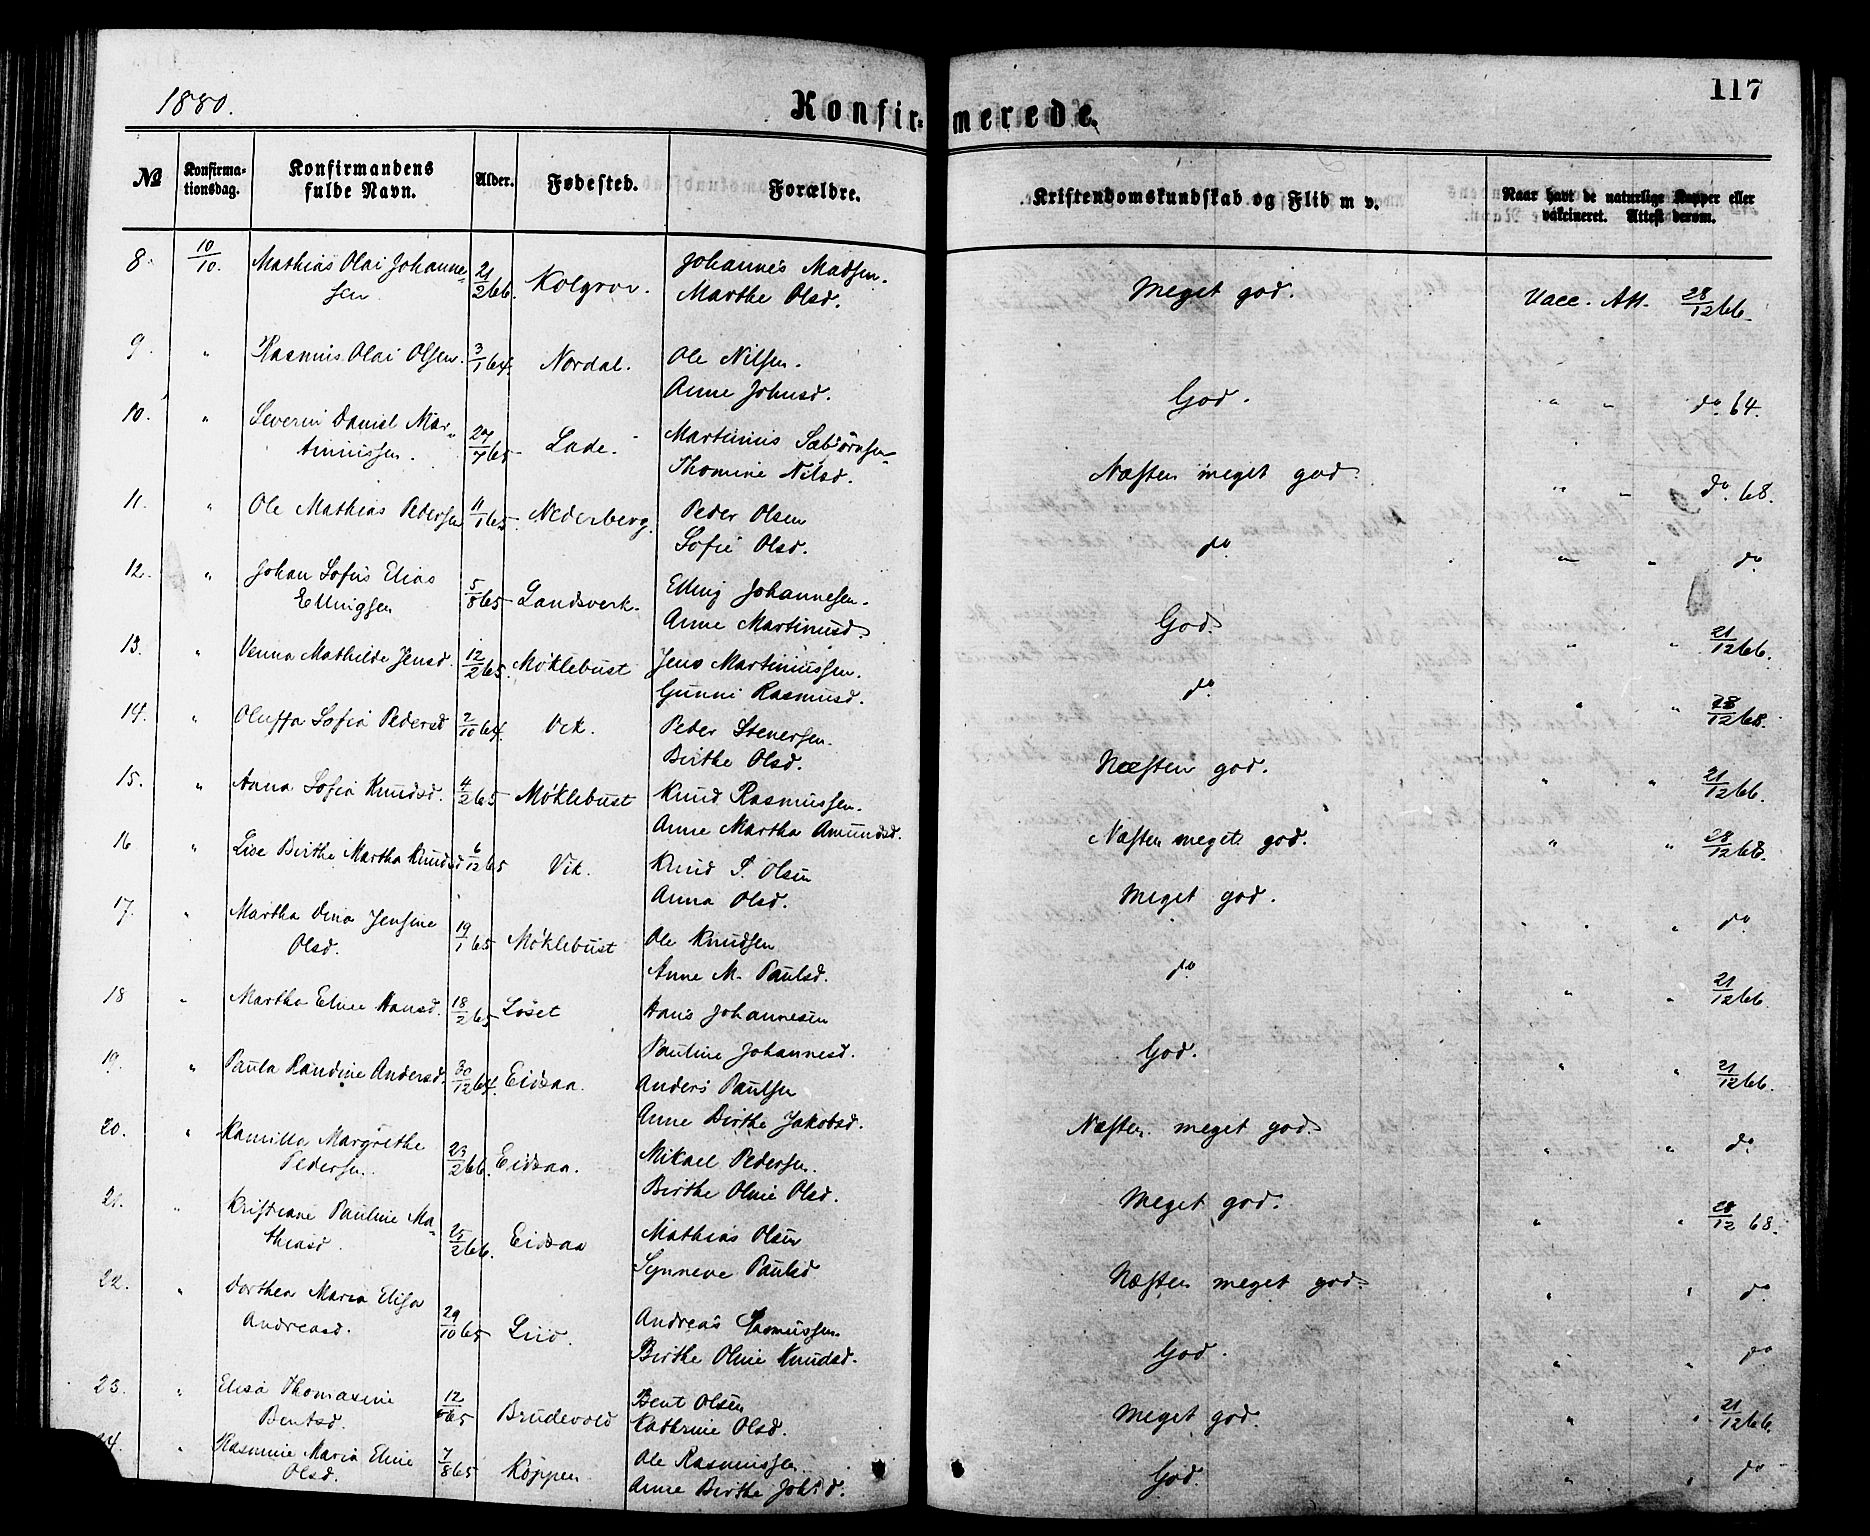 1880.
Konfirmerede.
117
No
Konfirma-
tionsdag.
Konfirmandens
fulde Navn.
Alder.
Fødested.
Forældre.
Kristendomskundskab og Flid m v.
Naar havt de naturlige Kopper eller
vakcineret. Attest derom.
8. 10/10. Mathias Olai Johanne= 21/2 66. Kolgrov. Johannes Madsen. Meget god. Vacc. Att. 28/12 66.
sen. Marthe Olsd.
9. " Rasmus Olai Olsen. 3/1 64. Nordal. Ole Nilsen. God. " " do. 64.
Anne Johnsd.
10. " Severin Daniel Mar= 27/7 65 Lade. Martinus Sæbjørnsen Næsten meget god " " do. 68.
tinussen. Thomine Nilsd.
11. " Ole Mathias Pedersen 11/1 65. Nederberg. Peder Olsen do. " " do.
Sofie Olsd.
12. " Johan Sofus Elias 5/8 65 Landsverk. Elling Johannesen. God. " " 21/12 66.
Ellingsen Anne Martinusd.
13. " Venna Mathilde Jensd. 12/2 65. Møklebust Jens Martinussen. do. " " 28/12 68.
Gunni Rasmusd.
14. " Oluffa Sofia Pedersd 2/10 64. Vik. Peder Stenersen. Næsten god. " " 21/12 66.
Birthe Olsd.
15. " Anna Sofia Knudsd. 4/2 65 Møklebust Knud Rasmussen. Næsten meget god. " " 28/12 68.
Anne Martha Amundsd.
16 " Lise Birthe Martha Knudsd 6/12 65 Vik. Knud P. Olsen Meget god. " " do.
Anna Olsd.
17. " Martha Dina Jensine 19/1 65 Møklebust Ole Knudsen do. " " 21/12 66.
Olsd. Anne M. Paulsd.
18 " Martha Eline Hansd. 18/2 65 Løset Hans Johannesen God. " " 21/12 66.
Pauline Johannesd.
19. " Paula Randine Andersd. 30/12 64. Eidsaa. Anders Paulsen Næsten meget god. " " do.
Anne Birthe Jakobsd.
20. " Kamilla Margrethe 23/2 66. Eidsaa. Mikael Pedersen. Meget god. " " 28/12 68.
Pedersen. Birthe Oline Olsd.
21. " Kristiane Pauline Ma= 25/2 66. Eidsaa Mathias Olsen Næsten meget god. " " do.
thiasd. Synneve Paulsd
22. " Dorthea Maria Elisa 29/10 65 Andreas Rasmussen. God. " " do
Andreasd. Birthe Oline Knudsd.
23. " Elisa Thomasine 12/6 65 Brudevold Bent Olsen Meget god. " " 21/12 66.
Bentsd. Kathrine Olsd.
24. " Rasmine Maria Eline 7/8 65 Koppen. Ole Rasmussen. God. " " do
Olsd. Anne Birthe Johsd.